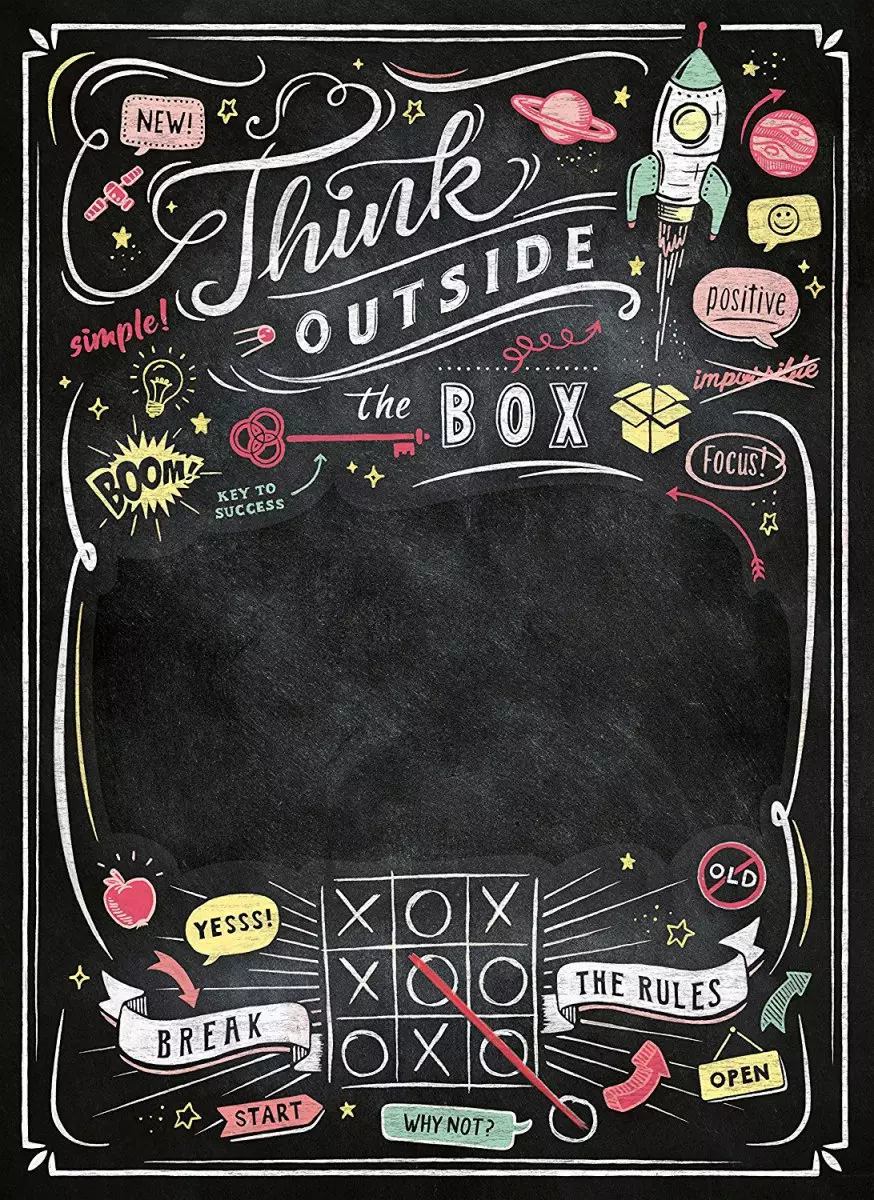 NEW!
Think
OUTSIDE
the BOX
simple!
positive
impossible
BOOM!
KEY TO
SUCCESS
Focus!
OLD
YESSS!
X O X
X O O
O X O
BREAK
THE RULES
OPEN
START
WHY NOT?
O